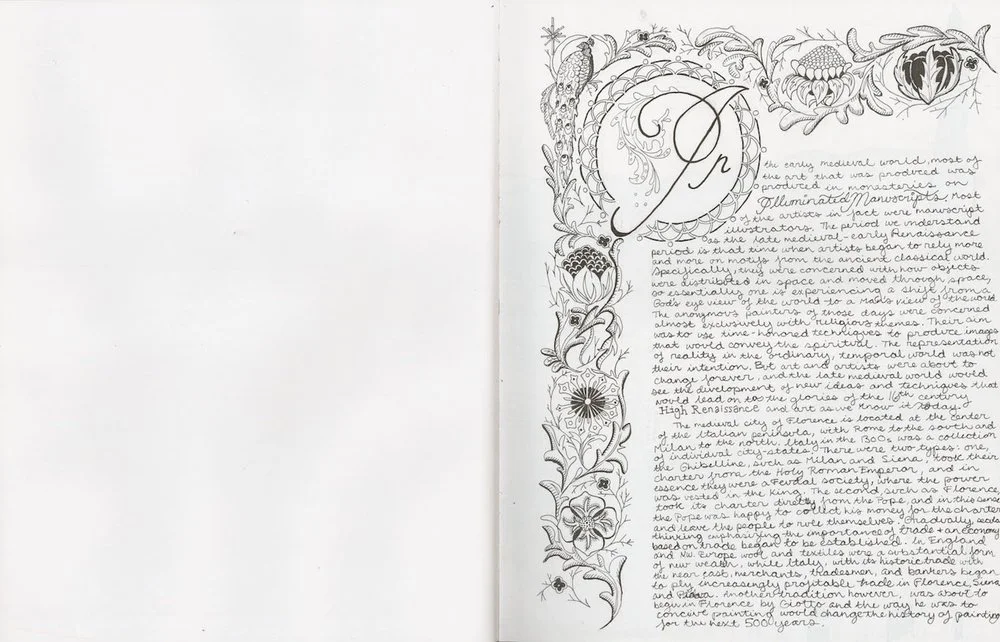 In the early medieval world, most of
the art that was produced was
produced in monasteries on
Illuminated Manuscripts. Most
of the artists in fact were manuscript
illustrators. The period we understand
as the late medieval-early Renaissance
period is that time when artists began to rely more
and more on motifs from the ancient classical world.
Specifically, they were concerned with how objects
were distributed in space and moved through space,
so essentially one is experiencing a shift from a
God's eye view of the world to a man's view of the world.
The anonymous painters of those days were concerned
almost exclusively with religious themes. Their aim
was to use time-honored techniques to produce images
that would convey the spiritual. The representation
of reality in the ordinary, temporal world was not
their intention. But art and artists were about to
change forever, and the late medieval world would
see the development of new ideas and techniques that
would lead on to the glories of the 16th century
High Renaissance and art as we know it today.
The medieval city of Florence is located at the center
of the Italian peninsula, with Rome to the south and
Milan to the north. Italy in the 1300s was a collection
of individual city-states. There were two types: one,
the Ghibelline, such as Milan and Siena, took their
charter from the Holy Roman Emperor, and in
essence they were a Feudal society, where the power
was vested in the King. The second, such as Florence,
took its charter directly from the Pope, and in this sense
the Pope was happy to collect his money for the charter
and leave the people to rule themselves. Gradually, secular
thinking emphasizing the importance of trade + an economy
based on trade began to be established. In England
and NW. Europe wool and textiles were a substantial form
of new wealth, while Italy, with its historic trade with
the near east, merchants, tradesmen, and bankers began
to ply increasingly profitable trade in Florence, Siena
and Padova. Another tradition however, was about to
begin in Florence by Giotto and the way he was to
conceive painting would change the history of painting
for the next 500 years.